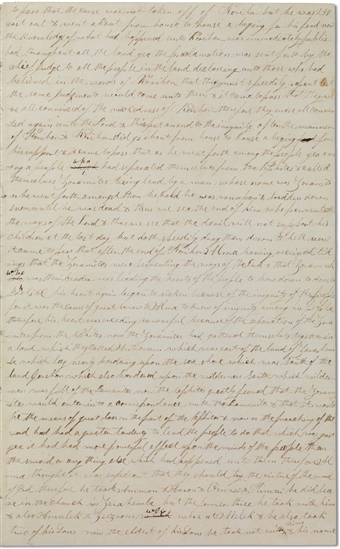 to pass that the curse was not taken off of Korihor but he was cast
out & went about from house to house a beging for his food now
the knowledge of what had happened unto Korihor was immediately publish
ed throughout all the land yea the proclamation was sent forth by the
chief judge to all the people in the land declareing unto those who had
believed in the words of Korihor that they must speedily repent lest
the same judgments would come unto them & it came to pass that they were
all convinced of the wickedness of Korihor therefore they were all convert
ed again unto the Lord & this put an end to the iniquity after the manner
of Korihor & Korihor did go about from house to house a beging food
for his support & it came to pass that as he went forth among the people yea am
ong a people who had seperated themselves from the Nephites & called
themselves Zoramites being lead by a man whose name was Zoram &
as he went forth amongst them behold he was run upon & trodden down
even untill he was dead & thus we see the end of him who perverteth
the ways of the Lord & thus we see that the devil will not support his
children at the last day but doth speedily drag them down to hell now
it came to pass that after the end of Korihor Alma having received tid
ings that the Zoramites were perverting the ways of the Lord & that Zoram
who was their leader was leading the hearts of the people to bow down to dumb
his heart again began to sicken because of the iniquity of the people
for it was the cause of great sorrow to Alma to know of iniquity among his people
therefore his heart was exceding sorrowful because of the seperation of the Zoram
ites from the Nephites now the Zoramites had gathered themselves together in
a land which they called Antionum which was east of the land of Zarahem
la which lay nearly bordering upon the sea shore which was south of the
land Jershon which also bordered upon the wilderness south which wilder
ness was full of the Lamanites now the Nephites greatly feared that the Zoram
ites would enter into a correspondence with the Lamanites & that it would
be the means of great loss on the part of the Nephites & now as the preaching of the
word had had a greater tendency to lead the people to do that which was just
yea it had had more powerful effect upon the minds of the people than
the sword or any thing else which had happened unto them therefore Al
ma thought it was expedient that they should try the virtue of the word
of God therefore he took Ammon & Aaron & Omner & Himni he did leave
in the church in Zarahemla but the former three he took with him
& also Amulek & Zeezrom who was at Melek & he also took
two of his sons now the eldest of his sons he took not with him & his name